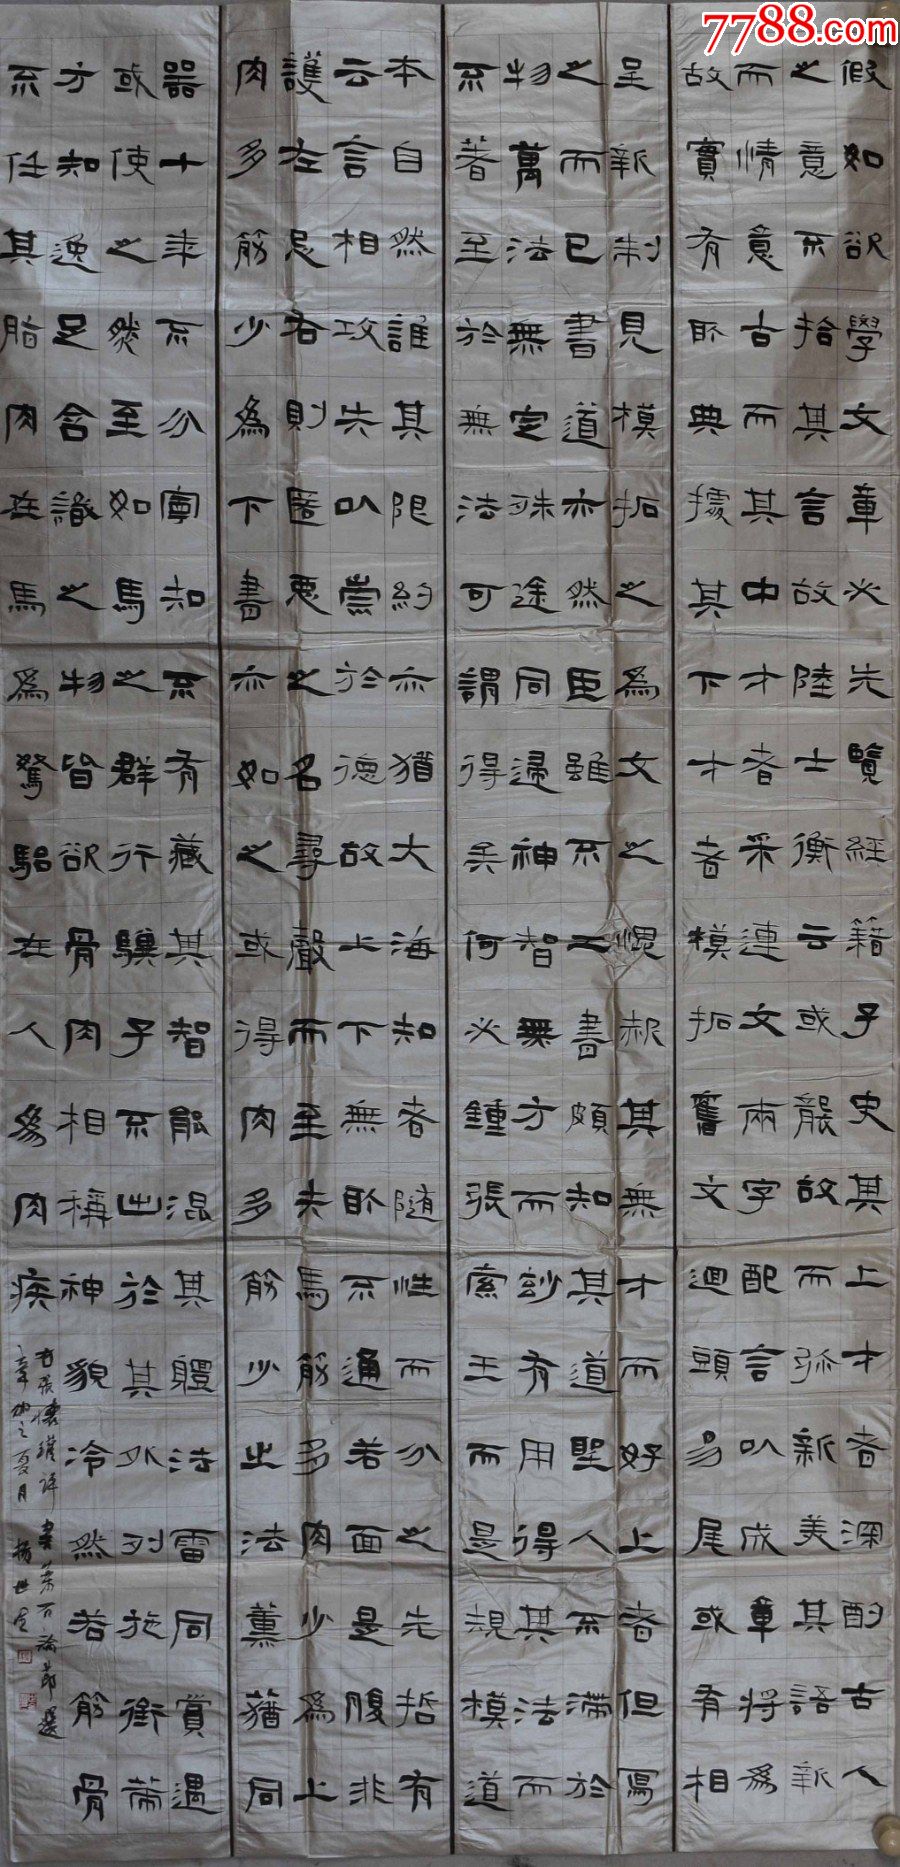 7788.com
假如欲學文章必先覽經籍子史其上才者深酌古人
之意不拾其言故陸士衡云或襲故而弥新美其語新
而情意古而其中才者采連文兩字配言以成章將為
故實有取典據其下才者模拓舊文迴頭易尾或有相
呈新制見模拓之為文之愧赧其無才而好上者但寫
之而已書道亦然臣雖不工書頗知其道聖人不滯於
物萬法無定殊途同歸神智無方而妙有用得其法而
不著至於無法可謂得矣何必鍾張索王而是規模道
本自然誰其限約亦猶大海知者隨性而分之先哲有
云言相攻失以崇於德故上下無所不通若面是腹非
護左忌右則匿惡之名尋聲而至夫馬筋多肉少為上
肉多筋少為下書亦如之或得肉多筋少之法薰蕕同
器十年不分寧知不有藏其智能混其體法雷同賞遇
或使之然至如馬之群行驥子不出於其外列施銜策
方知逸足含識之物皆欲骨肉相稱神貌冷然若筋骨
不任其脂肉在馬為駑駘在人為肉疾
右張懷瓘評書藥石論節選
辛卯之夏月 楊世